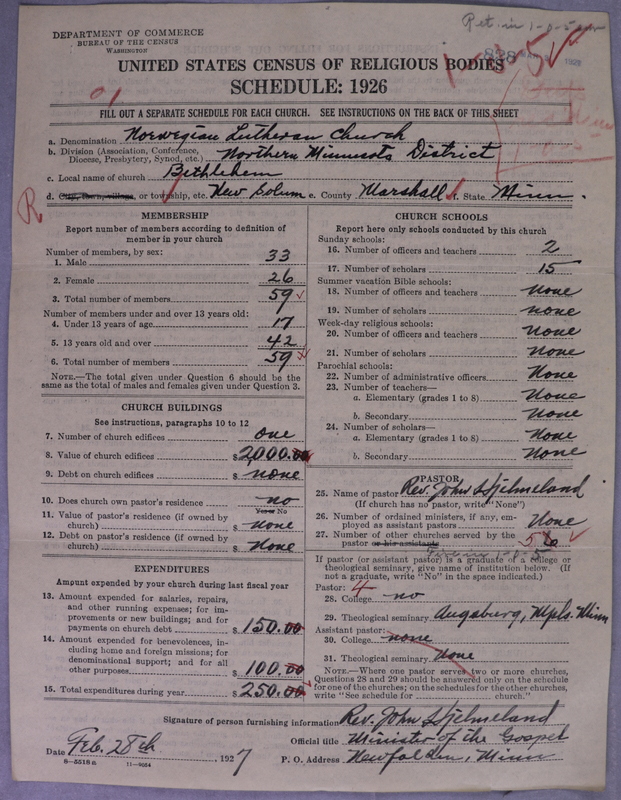 Ret. in 1-0-5
DEPARTMENT OF COMMERCE
BUREAU OF THE CENSUS
WASHINGTON
UNITED STATES CENSUS OF RELIGIOUS BODIES
SCHEDULE: 1926
FILL OUT A SEPARATE SCHEDULE FOR EACH CHURCH. SEE INSTRUCTIONS ON THE BACK OF THIS SHEET
a. Denomination Norwegian Lutheran Church
b. Division (Association, Conference, Diocese, Presbytery, Synod, etc.) Northern Minnesota District
c. Local name of church Bethlehem
d. City, town, village, or township, etc. New Solum e. County Marshall f. State Minn.
MEMBERSHIP
Report number of members according to definition of
member in your church
Number of members, by sex:
1. Male 33
2. Female 26
3. Total number of members 59
Number of members under and over 13 years old:
4. Under 13 years of age 17
5. 13 years old and over 42
6. Total number of members 59
NOTE.—The total given under Question 6 should be the
same as the total of males and females given under Question 3.
CHURCH BUILDINGS
See instructions, paragraphs 10 to 12
7. Number of church edifices one
8. Value of church edifices $ 2,000.00
9. Debt on church edifices $ none
10. Does church own pastor's residence no
Yes or No
11. Value of pastor's residence (if owned by
church) $ none
12. Debt on pastor's residence (if owned by
church) $ none
EXPENDITURES
Amount expended by your church during last fiscal year
13. Amount expended for salaries, repairs,
and other running expenses; for im-
provements or new buildings; and for
payments on church debt $ 150.00
14. Amount expended for benevolences, in-
cluding home and foreign missions; for
denominational support; and for all
other purposes $ 100.00
15. Total expenditures during year $ 250.00
CHURCH SCHOOLS
Report here only schools conducted by this church
Sunday schools:
16. Number of officers and teachers 2
17. Number of scholars 15
Summer vacation Bible schools:
18. Number of officers and teachers none
19. Number of scholars none
Week-day religious schools:
20. Number of officers and teachers none
21. Number of scholars None
Parochial schools:
22. Number of administrative officers None
23. Number of teachers—
a. Elementary (grades 1 to 8) None
b. Secondary None
24. Number of scholars—
a. Elementary (grades 1 to 8) None
b. Secondary None
PASTOR
25. Name of pastor Rev. John Hjelmeland
(If church has no pastor, write "None")
26. Number of ordained ministers, if any, em-
ployed as assistant pastors None
27. Number of other churches served by the
pastor or his assistants 5
Five in 1-0-5
If pastor (or assistant pastor) is a graduate of a college or
theological seminary, give name of institution below. (If
not a graduate, write "No" in the space indicated.)
Pastor: 4
28. College no
29. Theological seminary Augsburg, Mpls. Minn
Assistant pastor:
30. College none
31. Theological seminary None
NOTE.—Where one pastor serves two or more churches,
Questions 28 and 29 should be answered only on the schedule
for one of the churches; on the schedules for the other churches,
write "See schedule for church."
Signature of person furnishing information Rev. John Hjelmeland
Official title Minister of the Gospel
Date Feb. 28th, 1927 P. O. Address Newfolden, Minn
8-5518 a 11-9054